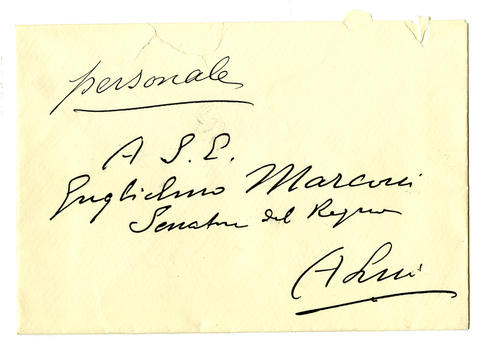 personale
A S. E.
Guglielmo Marconi
Senatore del Regno
A Lui